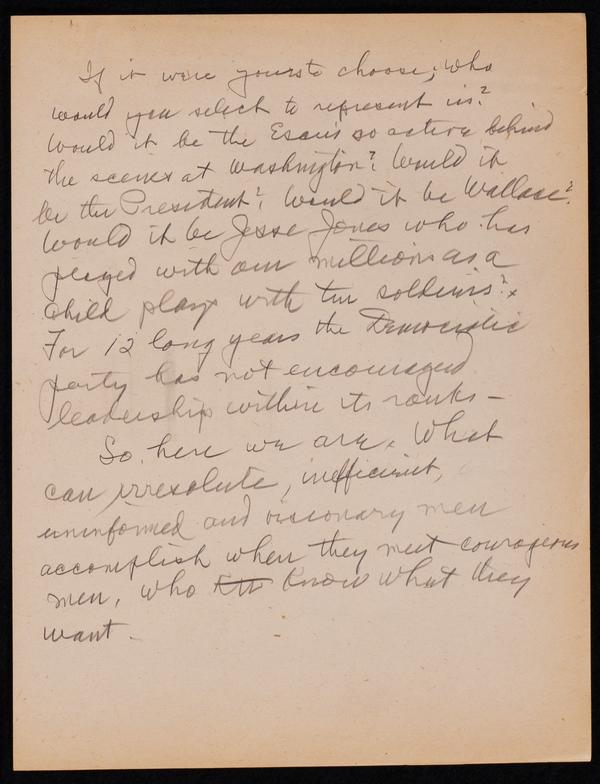 If it were yours to choose, who
would you select to represent us?
Would it be the Esau's so active behind
the scenes at Washington? Would it
be the President? Would it be Wallace?
Would it be Jesse Jones who has
played with our millions as a
child plays with tin soldiers?
For 12 long years the Democratic
party has not encouraged
leadership within its ranks –
So here we are. What
can irresolute, inefficient,
uninformed and visionary men
accomplish when they meet courageous
men, who kn know what they
want.